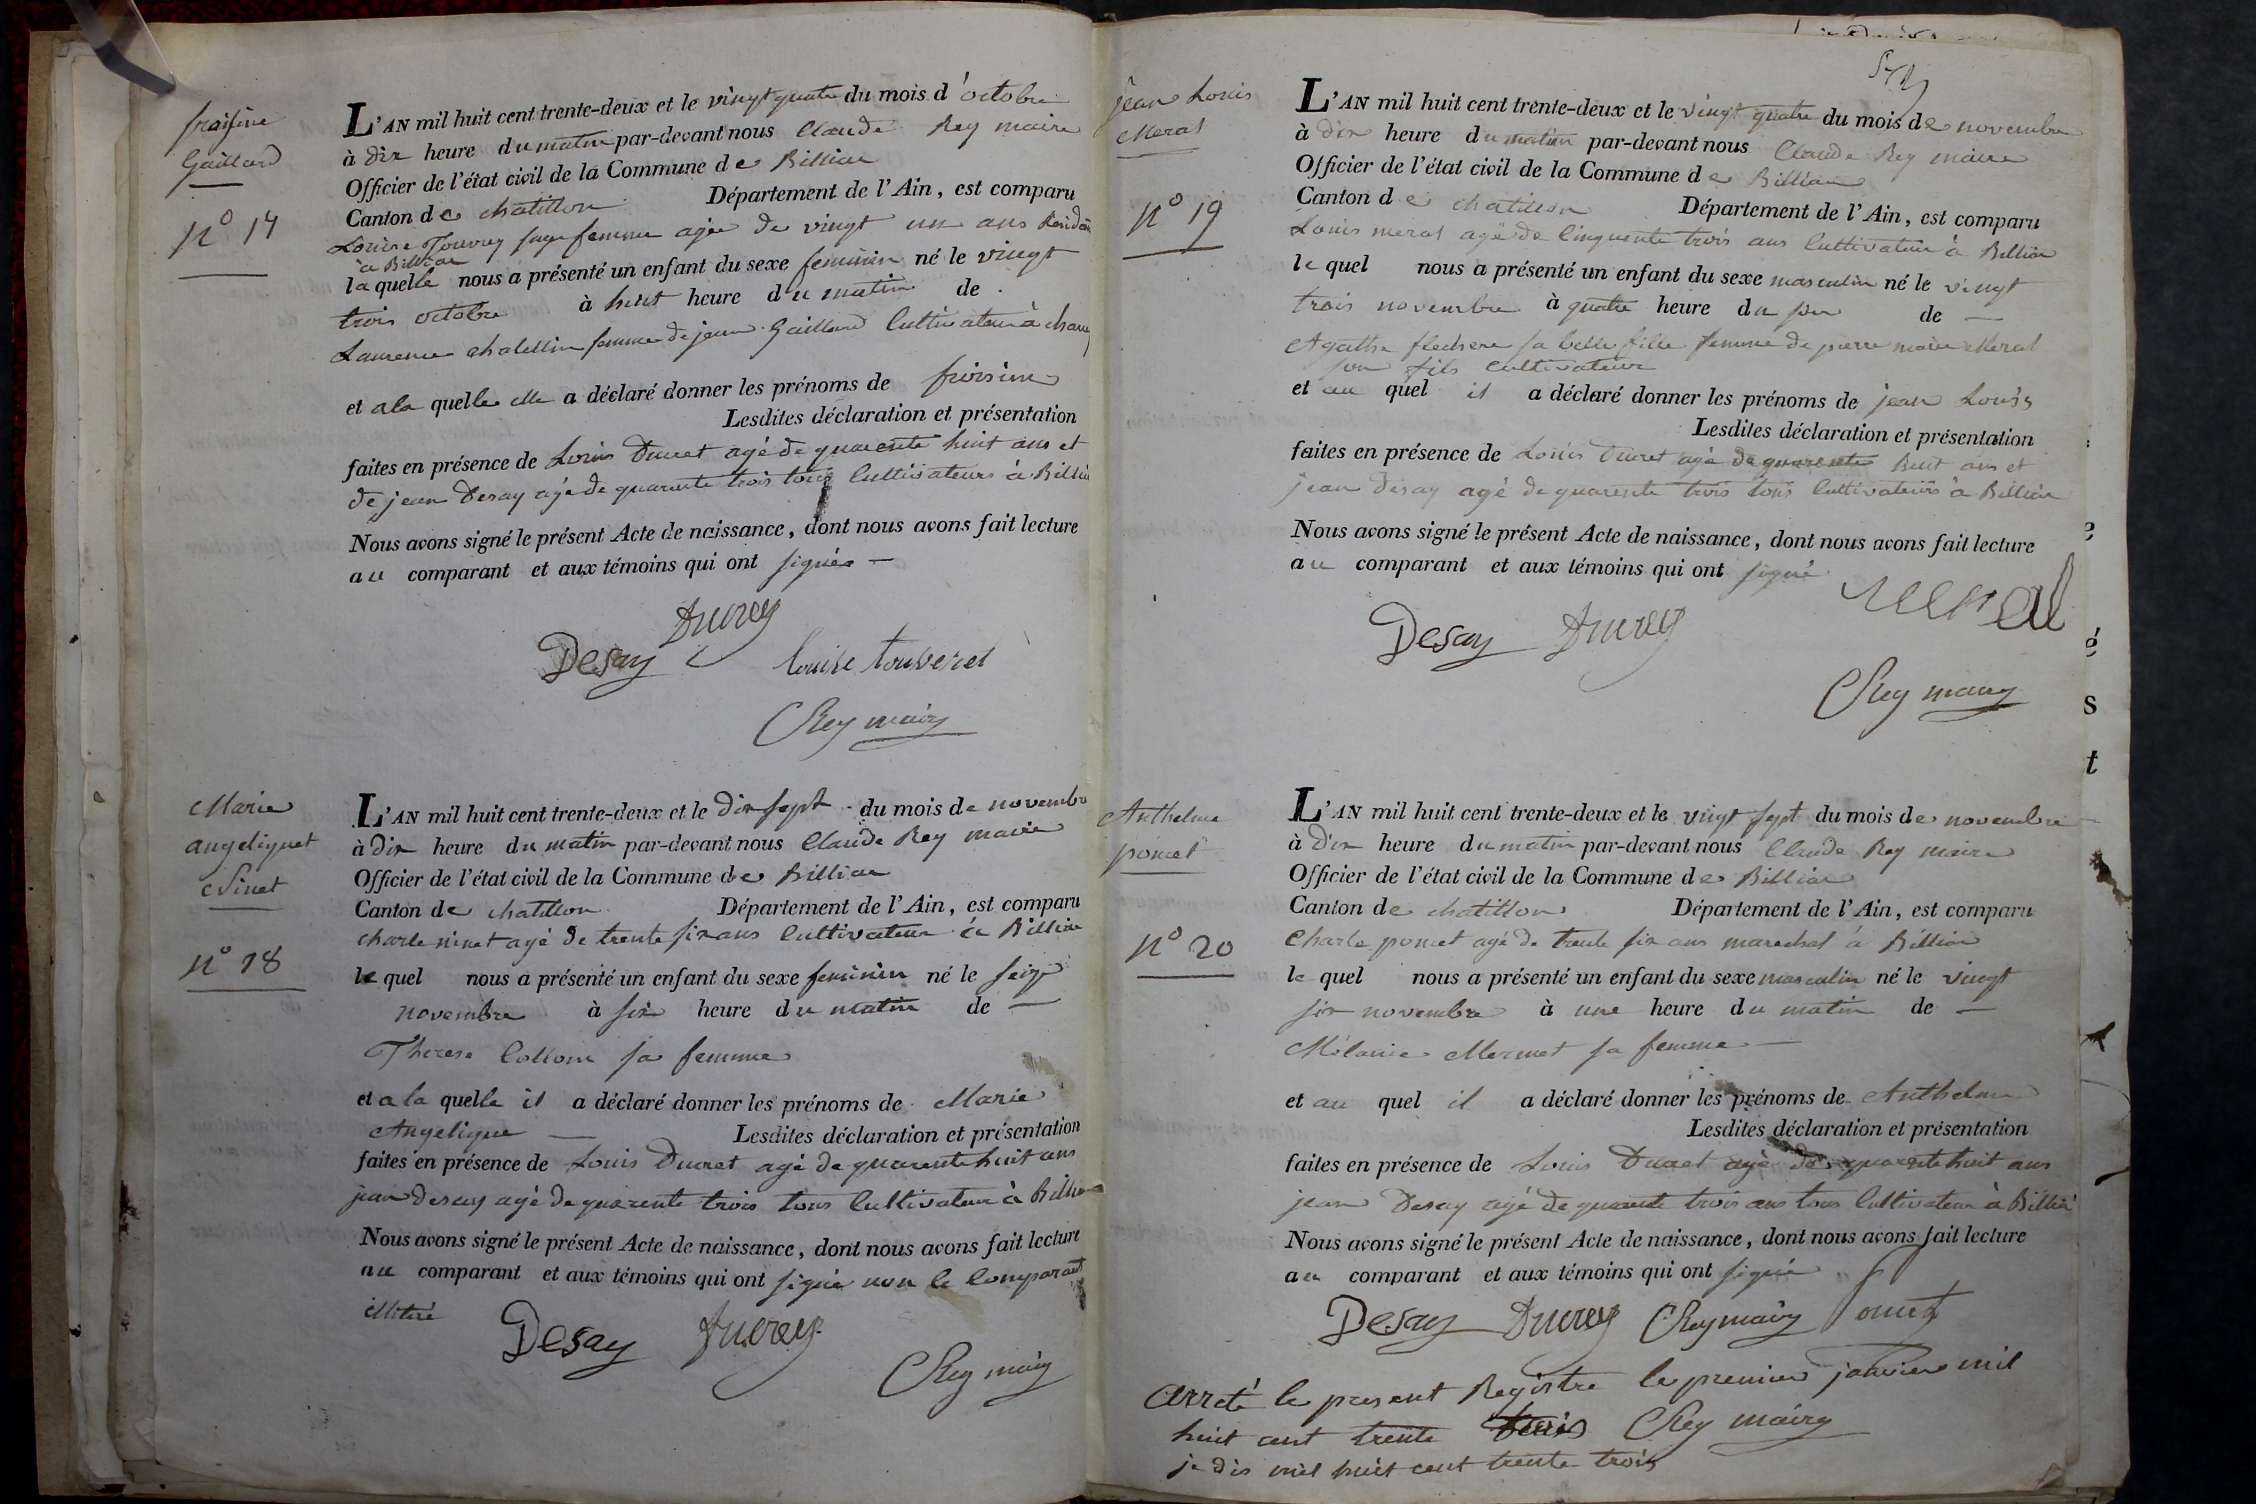 fraisine
Gaillard
N° 17
L'AN mil huit cent trente-deux et le vingt quatre du mois d'octobre
à dix heure du matin par-devant nous Claude Rey maire
Officier de l'état civil de la Commune de Billiae
Canton de chatillon Département de l'Ain, est comparu
Louise Touvrey sage femme agée de vingt un ans
à Billiae
laquelle nous a présenté un enfant du sexe feminin né le vingt
trois octobre à huit heure du matin de
Laurence femme de jean Gaillard Cultivateur à
et a la quelle elle a déclaré donner les prénoms de froisine
Lesdites déclaration et présentation
faites en présence de Louis Ducret agé de quarente huit ans et
de jean Desay agé de quarente trois tous Cultivateurs à Billiae
Nous avons signé le présent Acte de naissance, dont nous avons fait lecture
au comparant et aux témoins qui ont signés
Ducrey
Desay louise touverel
CRey maire
Marie
angeliquet
Ninet
N° 18
L'AN mil huit cent trente-deux et le Dix sept du mois de novembre
à dix heure du matin par-devant nous Claude Rey maire
Officier de l'état civil de la Commune de Billiae
Canton de chatillon Département de l'Ain, est comparu
charle ninet agé de trente six ans Cultivateur à Billiae
le quel nous a présenté un enfant du sexe feminin né le seize
novembre à six heure du matin de —
Therese Collom sa femme
et a la quelle il a déclaré donner les prénoms de Marie
Angelique — Lesdites déclaration et présentation
faites en présence de Louis Ducret agé de quarente huit ans
jean desay agé de quarente trois tous Cultivateur à Billiae
Nous avons signé le présent Acte de naissance, dont nous avons fait lecture
au comparant et aux témoins qui ont signé non le Comparant
illitéré
Desay Ducrey
CRey maire
jean Louis
Meral
N° 19
L'AN mil huit cent trente-deux et le vingt quatre du mois de novembre
à dix heure du matin par-devant nous Claude Rey maire
Officier de l'état civil de la Commune de Billiae
Canton de chatillon Département de l'Ain, est comparu
Louis meral agé de Cinquente trois ans Cultivateur à Billiae
le quel nous a présenté un enfant du sexe masculin né le vingt
trois novembre à quatre heure du soir de —
Agathe flechere sa belle fille femme de pierre marie Meral
son fils Cultivateur
et au quel il a déclaré donner les prénoms de jean Louis
Lesdites déclaration et présentation
faites en présence de Louis Ducret agé de quarente huit ans et
jean desay agé de quarente trois tous Cultivateurs à Billiae
Nous avons signé le présent Acte de naissance, dont nous avons fait lecture
au comparant et aux témoins qui ont signé
meral
Desay Ducrey
CRey maire
Anthelme
pomet
N° 20
L'AN mil huit cent trente-deux et le vingt sept du mois de novembre
à Dix heure du matin par-devant nous Claude Rey maire
Officier de l'état civil de la Commune de Billiae
Canton de chatillon Département de l'Ain, est comparu
Charle pomet agé de trente six ans marechal à Billiae
le quel nous a présenté un enfant du sexe masculin né le vingt
six novembre à une heure du matin de —
Mélanie Mermet sa femme —
et au quel il a déclaré donner les prénoms de Anthelme
Lesdites déclaration et présentation
faites en présence de Louis Ducret agé de quarente huit ans
jean Desay agé de quarente trois ans tous Cultivateur à Billiae
Nous avons signé le présent Acte de naissance, dont nous avons fait lecture
au comparant et aux témoins qui ont signé
Desay Ducrey CRey maire Pomet
arreté le present Registre le premier janvier mil
huit cent trente trois CRey maire
je dis mil huit cent trente trois